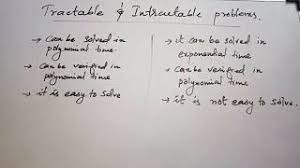 Tractable & Intractable problems.
→ can be solved in
polynomial time
→ can be verified in
polynomial time
→ it is easy to solve
→ it can be solved in
exponential time
→ can be verified in
polynomial time
→ it is not easy to solve.